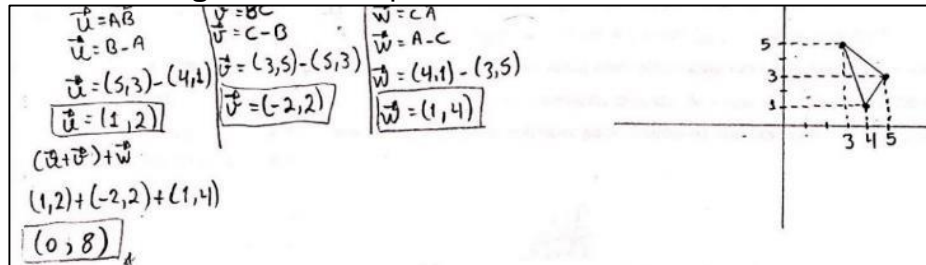 u⃗ = AB⃗
u⃗ = B - A
u⃗ = (5,3) - (4,1)
u⃗ = (1,2)
v⃗ = BC⃗
v⃗ = C - B
v⃗ = (3,5) - (5,3)
v⃗ = (-2,2)
w⃗ = CA
w⃗ = A - C
w⃗ = (4,1) - (3,5)
w⃗ = (1,4)
(u⃗+v⃗)+w⃗
(1,2)+(-2,2)+(1,4)
(0,8)
5
3
1
3 4 5